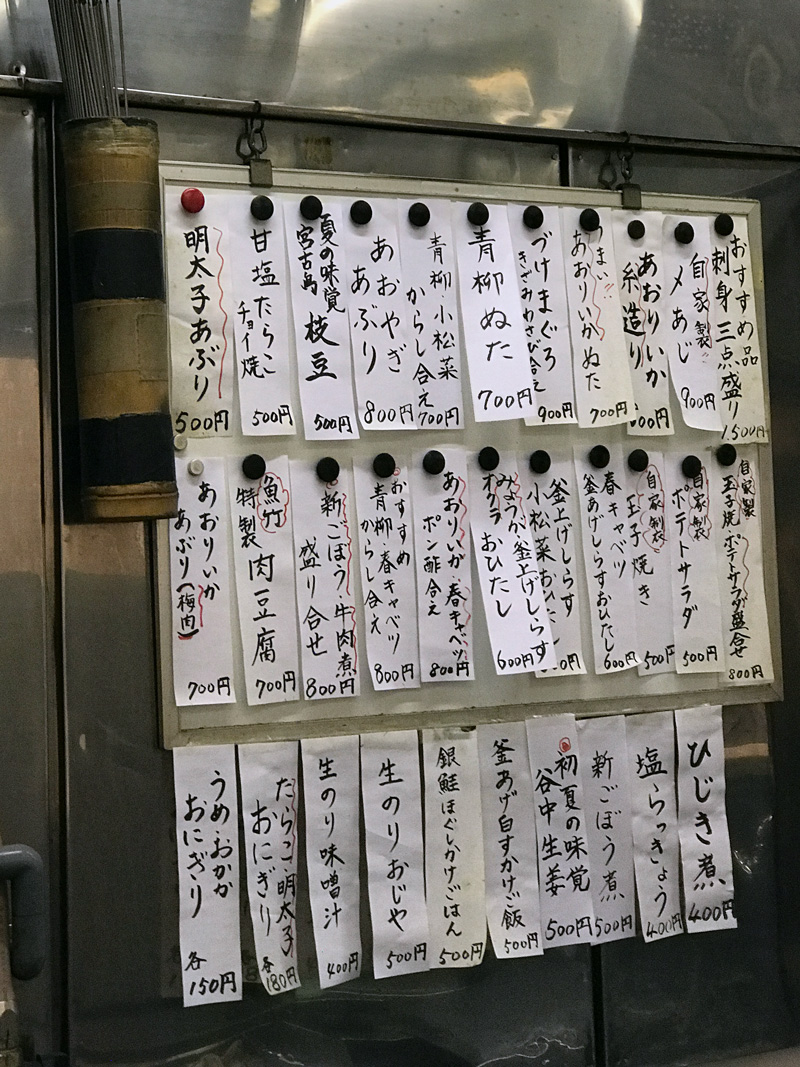 おすすめ品
刺身三点盛り
1,500円
自家製
〆あじ
900円
あおりいか
糸造り
うまい!!
あおりいかぬた
700円
づけまぐろ
きざみわさび合え
900円
青柳ぬた
700円
青柳・小松菜
からし合え
700円
あおやぎ
あぶり
800円
夏の味覚
宮古島
枝豆
500円
甘塩たらこ
チョイ焼
500円
明太子あぶり
500円
自家製
玉子焼
ポテトサラダ盛合せ
800円
自家製
ポテトサラダ
500円
自家製
玉子焼き
500円
春キャベツ
釜あげしらすおひたし
600円
釜上げしらす
小松菜おひたし
みょうが・釜上げしらす
オクラおひたし
600円
あおりいか・春キャベツ
ポン酢合え
800円
おすすめ
青柳・春キャベツ
からし合え
800円
新ごぼう・牛肉煮
盛り合せ
800円
魚竹
特製
肉豆腐
700円
あおりいか
あぶり(梅肉)
700円
ひじき煮
400円
塩らっきょう
400円
新ごぼう煮
500円
初夏の味覚
谷中生姜
500円
釜あげ白すかけご飯
500円
銀鮭ほぐしかけごはん
500円
生のりおじや
500円
生のり味噌汁
400円
たらこ・明太子
おにぎり
各180円
うめ・おかか
おにぎり
各150円